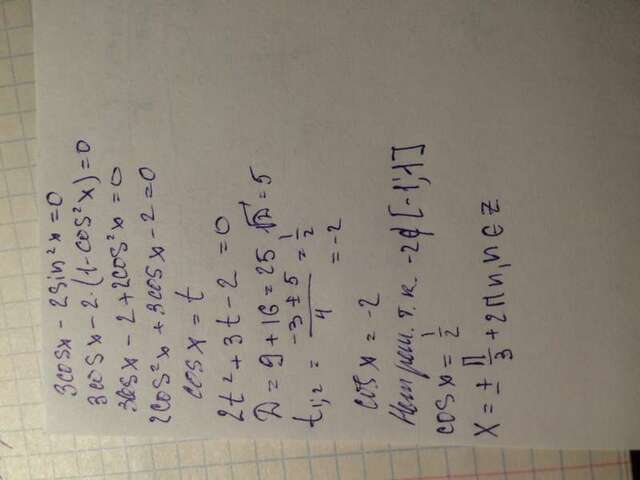 3cosx - 2sin²x = 0
3cosx - 2·(1-cos²x) = 0
3cosx - 2 + 2cos²x = 0
2cos²x + 3cosx - 2 = 0
cosx = t
2t² + 3t - 2 = 0
D = 9 + 16 = 25 √D = 5
t₁;₂ = (-3 ± 5)/4 = 1/2
= -2
cosx = -2
Нет реш. т.к. -2∉[-1;1]
cosx = 1/2
X = ± П/3 + 2Пn, n ∈ Z